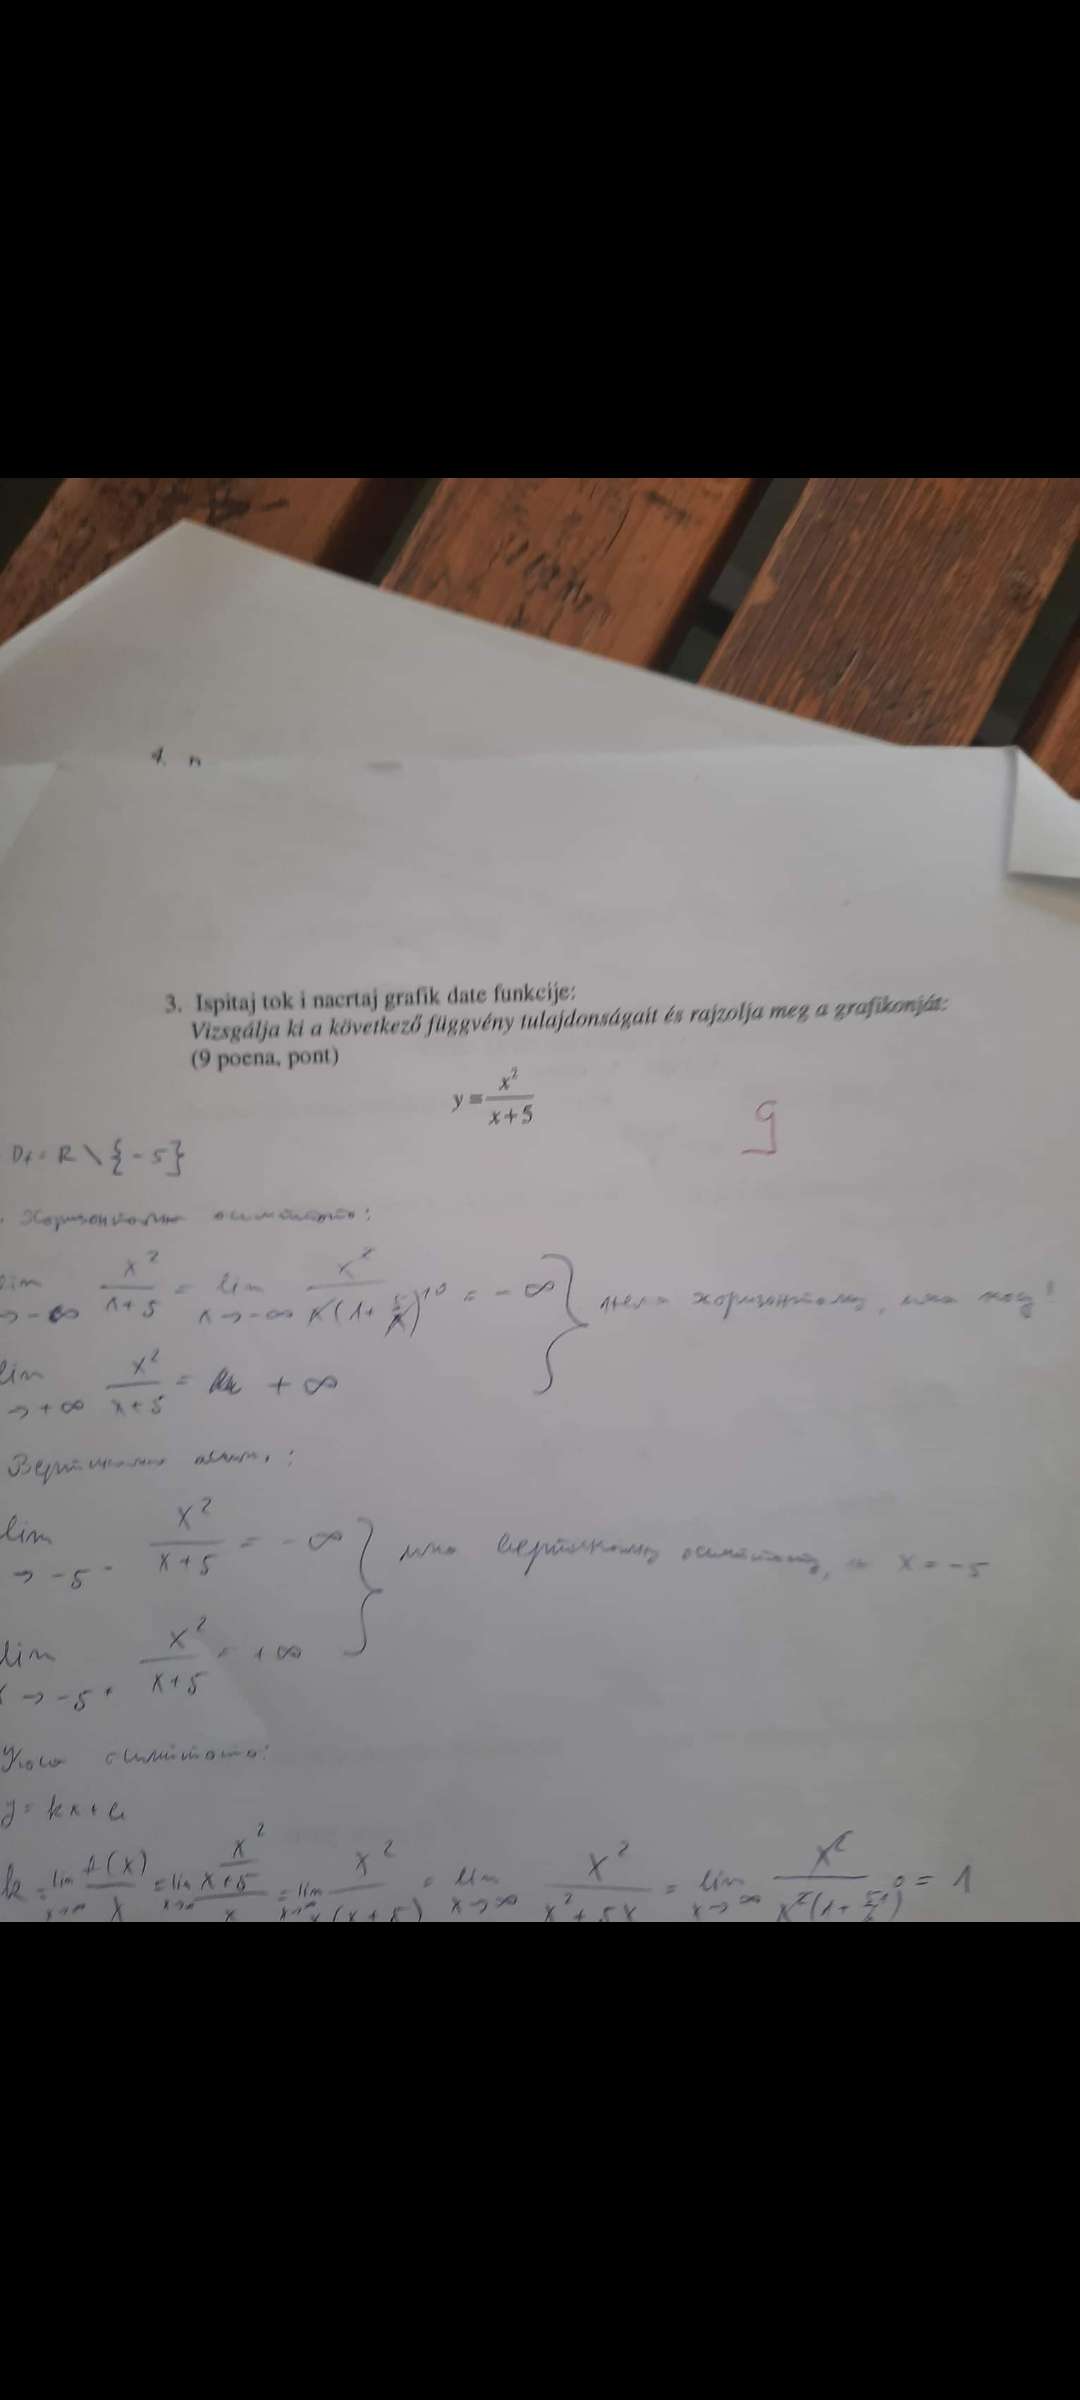 4. n
3. Ispitaj tok i nacrtaj grafik date funkcije:
Vizsgálja ki a következő függvény tulajdonságait és rajzolja meg a grafikonját:
(9 poena, pont)
y = x²/(x+5)
9
Df = R \ {-5}
Хоризонтална асимптота:
lim → -∞ x²/(x+5) = lim x → -∞ x²/(x(1+5/x)) = -∞ } нема хоризонталну, има
lim → +∞ x²/(x+5) = +∞
Вертикална асим.:
lim → -5- x²/(x+5) = -∞ } има вертикалну асимптоту, x = -5
lim x → -5+ x²/(x+5) = +∞
Коса асимптота:
y = kx +
k = lim x→∞ f(x)/x = lim x→∞ (x²/(x+5))/x = lim x→∞ x²/(x(x+5)) = lim x→∞ x²/(x²+5x) = lim x→∞ x²/(x²(1+ = 1